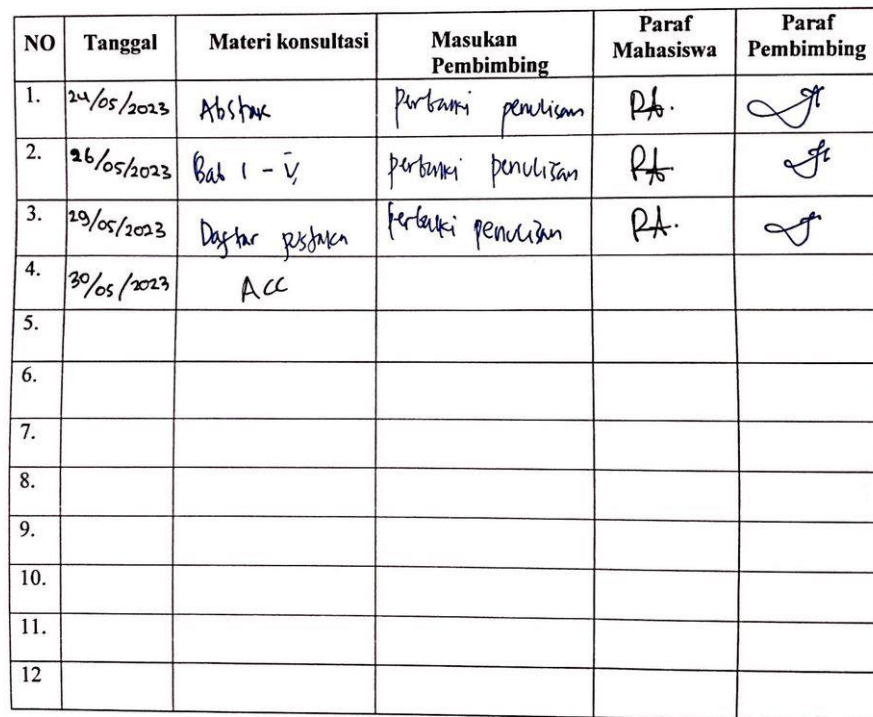 NO Tanggal Materi konsultasi Masukan Pembimbing Paraf Mahasiswa Paraf Pembimbing
1. 24/05/2023 Abstrak perbaiki penulisan RA.
2. 26/05/2023 Bab I - V perbaiki penulisan RA
3. 29/05/2023 Daftar pustaka perbaiki penulisan RA.
4. 30/05/2023 ACC
5.
6.
7.
8.
9.
10.
11.
12